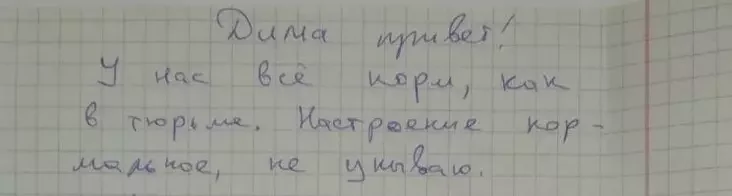 Дима привет!
У нас всё норм, как
в тюрьме. Настроение нор-
мальное, не унываю.